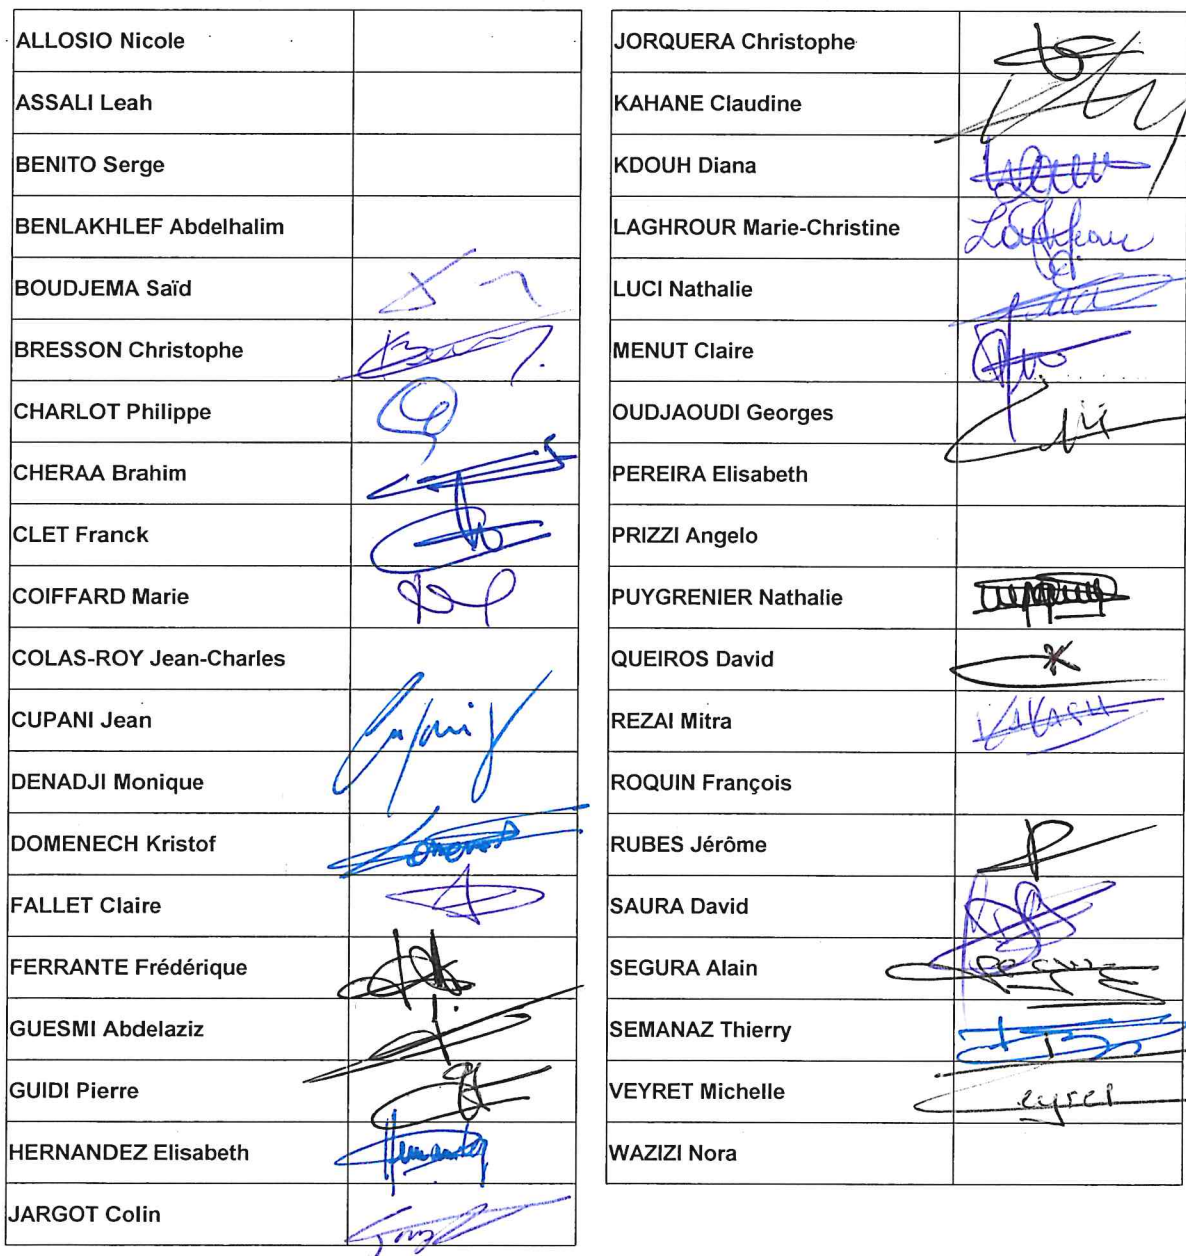 ALLOSIO Nicole
ASSALI Leah
BENITO Serge
BENLAKHLEF Abdelhalim
BOUDJEMA Saïd
BRESSON Christophe
CHARLOT Philippe
CHERAA Brahim
CLET Franck
COIFFARD Marie
COLAS-ROY Jean-Charles
CUPANI Jean
DENADJI Monique
DOMENECH Kristof
FALLET Claire
FERRANTE Frédérique
GUESMI Abdelaziz
GUIDI Pierre
HERNANDEZ Elisabeth
JARGOT Colin
JORQUERA Christophe
KAHANE Claudine
KDOUH Diana
LAGHROUR Marie-Christine
LUCI Nathalie
MENUT Claire
OUDJAOUDI Georges
PEREIRA Elisabeth
PRIZZI Angelo
PUYGRENIER Nathalie
QUEIROS David
REZAI Mitra
ROQUIN François
RUBES Jérôme
SAURA David
SEGURA Alain
SEMANAZ Thierry
VEYRET Michelle
WAZIZI Nora